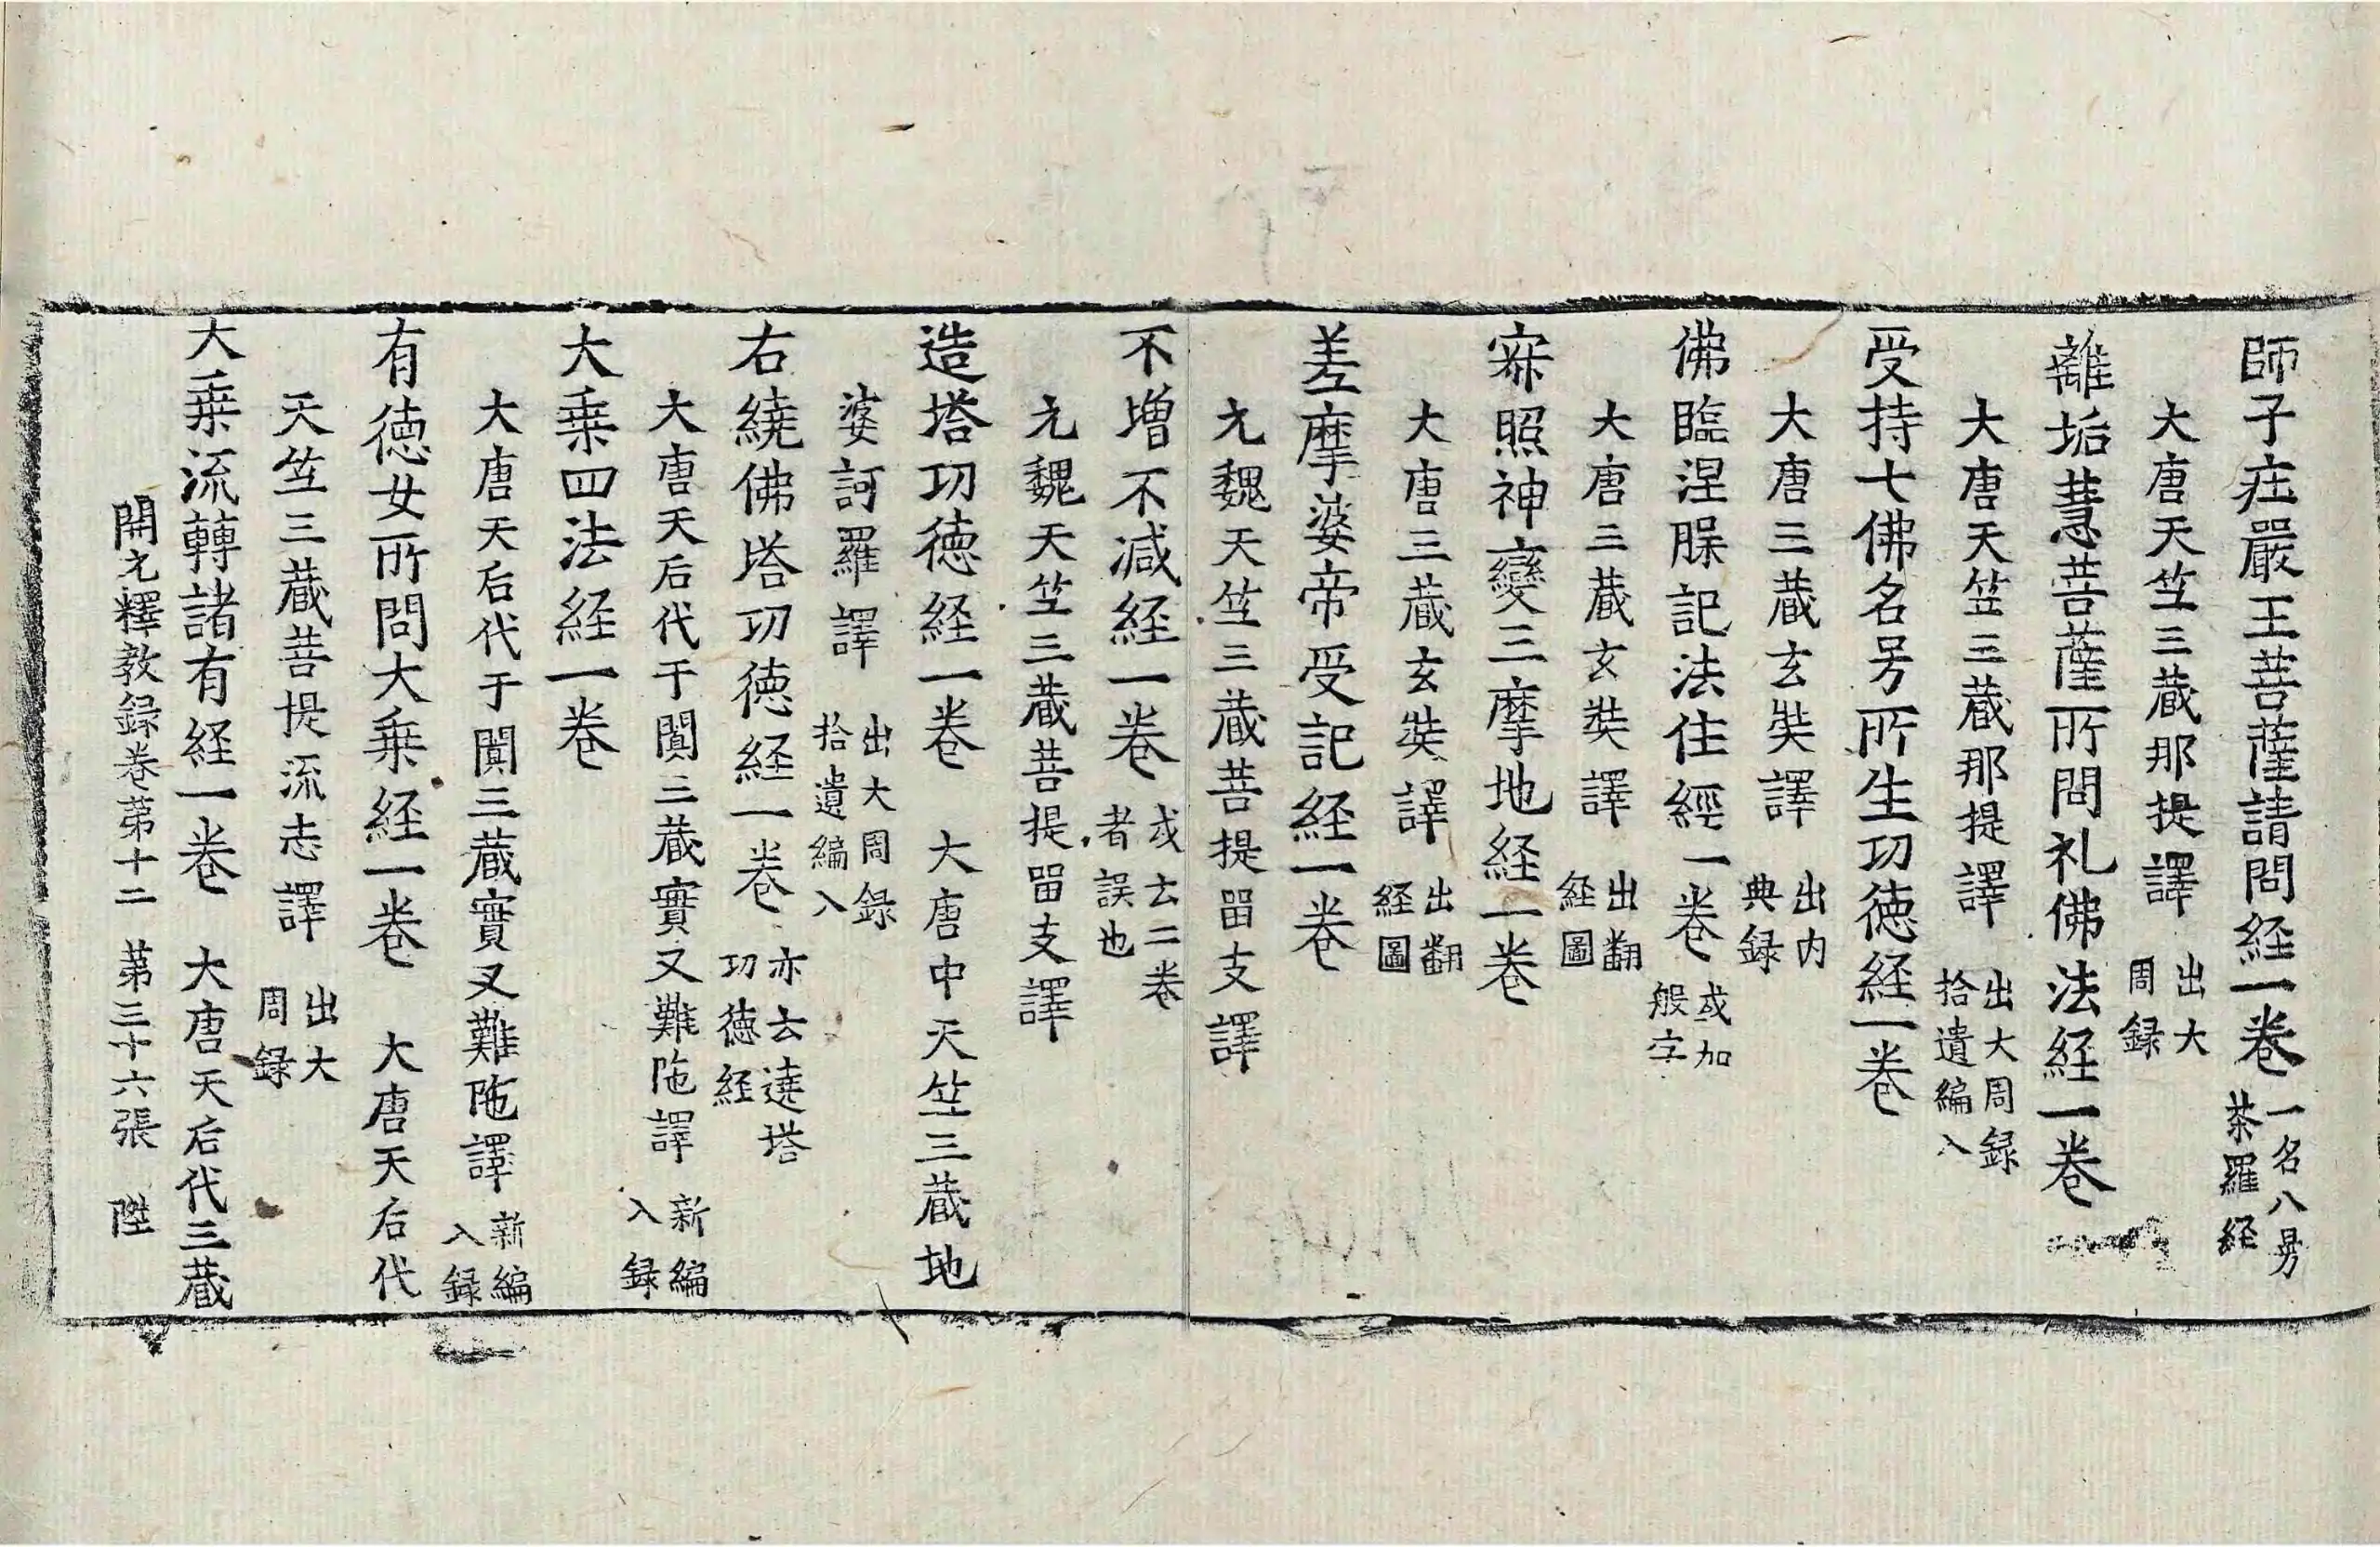 師子疘嚴王菩薩請問経一卷一名八曼茶羅経
大唐天竺三蔵那提譯出大周録
離垢慧菩薩所問礼佛法経一卷
大唐天竺三蔵那提譯出大周録拾遺編入
受持七佛名号所生功徳経一卷
大唐三蔵玄奘譯出内典録
佛臨涅槃記法住經一卷或加般字
大唐三蔵玄奘譯出翻経圖
寂照神變三摩地経一卷
大唐三蔵玄奘譯出翻経圖
差摩婆帝受記経一卷
元魏天竺三蔵菩提留支譯
不増不减経一卷或云二卷者誤也
元魏天竺三蔵菩提留支譯
造塔功徳経一卷　大唐中天竺三蔵地
婆訶羅譯出大周録拾遺編入
右繞佛塔功徳経一卷亦云遶塔功徳経
大唐天后代于闐三蔵實叉難陁譯新編入録
大乗四法経一卷
大唐天后代于闐三蔵實叉難陁譯新編入録
有徳女所問大乗経一卷　大唐天后代
天竺三蔵菩提流志譯出大周録
大乗流轉諸有経一卷　大唐天后代三蔵
開元釋教録卷苐十二　苐三十六張　陞